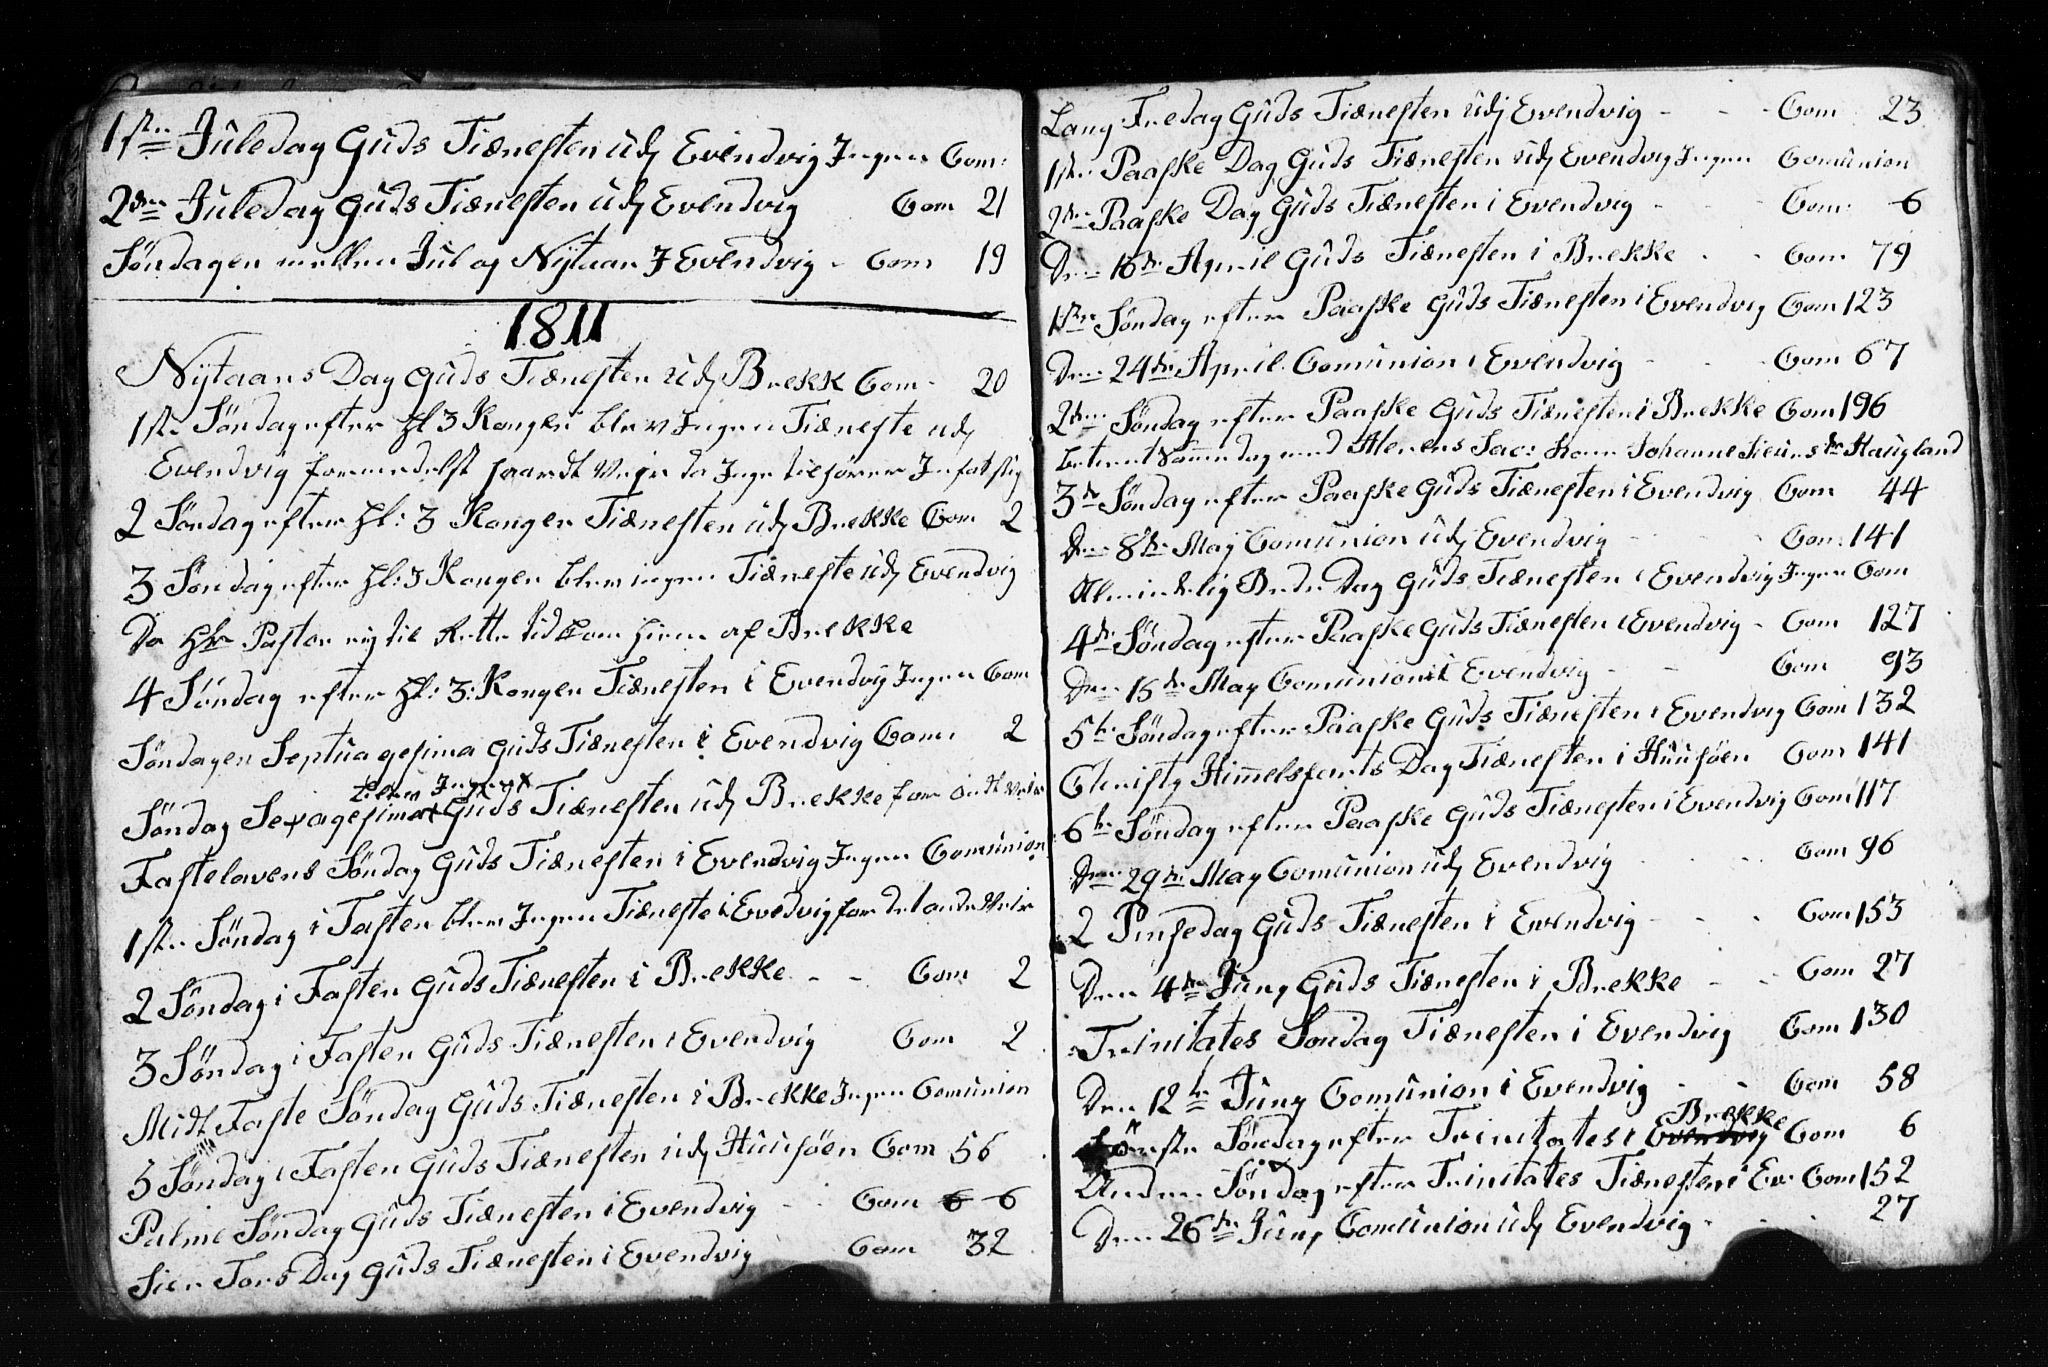 1ste Juledag Guds Tiænesten udj Evendvig Ingen Com:
2den Juledag Guds Tiænesten udj Evendvig Com 21
Søndagen mellem Jul og Nytaar I Evendvig - Com 19
1811
Nytaars Dag Guds Tiænesten udj Brekk Com 20
1ste Søndag efter Hl 3 Konger blev Ingen Tiæneste udj
Evendvig formedelst haardt Vejr da Inge tilhører
2 Søndag efter Hl: 3 Konger Tiænesten udj Brekke Com 2
3 Søndag efter Hl: 3 Konger blev ingen Tiæneste udj Evendvig
Da Hr Pastor ej til Rette tid kom hiem af Brekke
4 Søndag efter Hl: 3: Konger Tiænesten i Evendvig Ingen Com
Søndagen Septuagesima Guds Tiænesten i Evendvig Com: 2
blev Ingen
Søndag Sexagesima Guds Tiænesten udj Brekke for ondt Veir
Fastelavens Søndag Guds Tiænesten i Evendvig Ingen Comunion
1ste Søndag i Fasten blev Ingen Tiæneste i Evedvig for det onde Veir
2 Søndag i Fasten Guds Tiænesten i Brekke - - Com 2
3 Søndag i Fasten Guds Tiænesten i Evendvig Com 2
Midt Faste Søndag Guds Tiænesten i Brekke Ingen Comunion
5 Søndag i Fasten Guds Tiænesten udj Huusøen Com 56
Palme Søndag Guds Tiænesten i Evendvig - - Com 6 6
Sier Tors Dag Guds Tiænesten i Evendvig Com 32
Lang Fredag Guds Tiænesten udj Evendvig - - - Com 23
1ste Paaske Dag Guds Tiænesten udj Evendvig Ingen Comunion
2den Paaske Dag Guds Tiænesten i Evendvig - - - Com: 6
Den 16de April Guds Tiænesten i Brekke - - Com 79
1ste Søndag efter Paaske Guds Tiænesten i Evendvig Com 123
Den 24de April Comunion i Evendvig - - - Com 67
2den Søndag efter Paaske Guds Tiænesten i Brekke Com 196
med Alterens Sac: Johanne Haugland
3de Søndag efter Paaske Guds Tiænesten i Evendvig Com 44
Den 8de May Comunion udj Evendvig - - - Com: 141
Almindelig Bede Dag Guds Tiænesten i Evendvig Ingen Com
4de Søndag efter Paaske Guds Tiænesten i Evendvig - Com 127
Den 15de May Comunion i Evendvig - - Com 93
5te Søndag efter Paaske Guds Tiænesten i Evendvig Com 132
Christy Himmelsfarts Dag Tiænesten i Huusøen Com 141
6te Søndag efter Paaske Guds Tiænesten i Evendvig Com 117
Den 29de May Comunion udj Evendvig - - - Com 96
2 Pinsedag Guds Tiænesten i Evendvig - - - Com 153
Den 4de Juny Guds Tiænesten i Brekke - - Com 27
Trinitates Søndag Tiænesten i Evendvig Com 130
Den 12te Juny Comunion i Evendvig - - Com 58
Brekke
Første Søndag efter Trinitates i Evendvig Com 6
Anden Søndag efter Trinitates Tiænesten i Ev: Com 152
Den 26de Juny Comunion udj Evendvig - - - 27